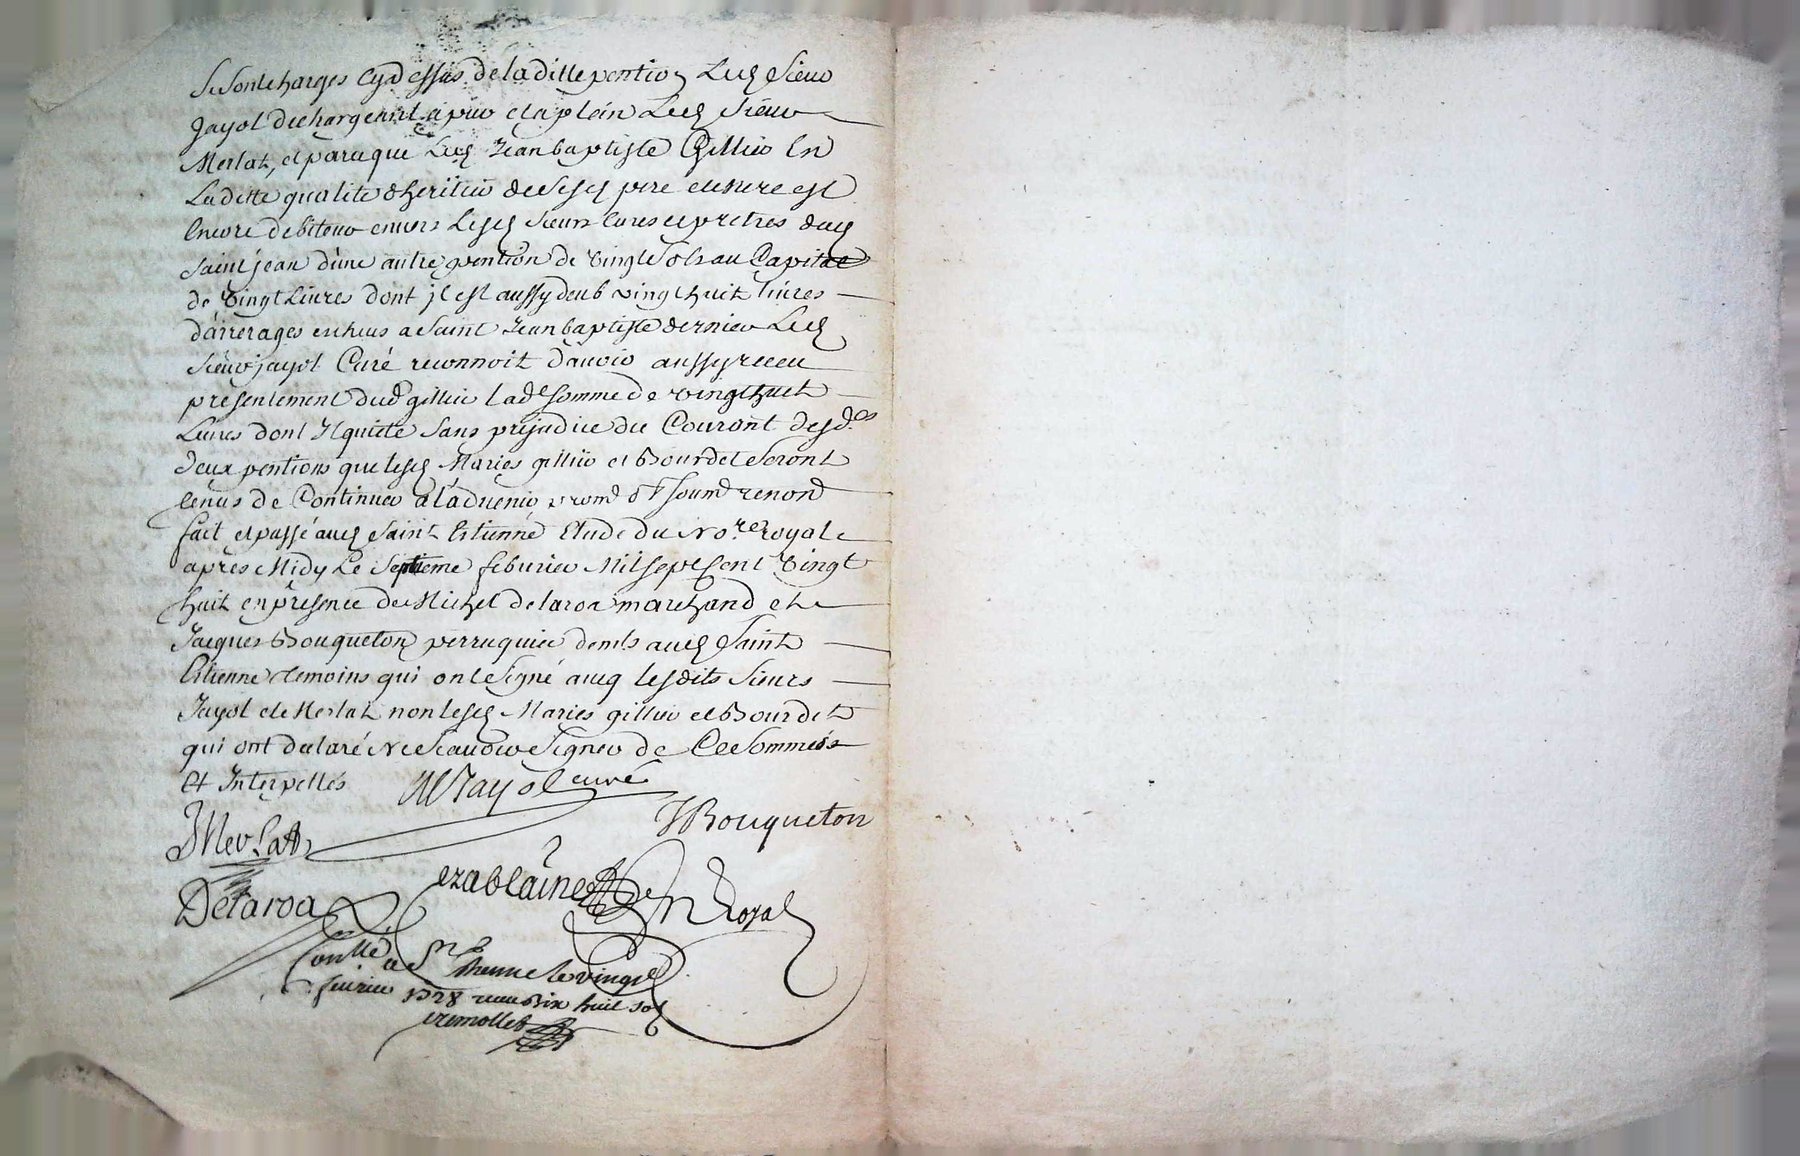 se sont charges cyd essus de la ditte pention Led sieur
Jayol dechargeant a pur et a plein Led sieur
Merlat, et parceque Led Jean baptiste Gillier En
Laditte qualité d'heritier de sesd pere et mere est
Encore debiteur envers Lesd sieurs Cures et pretres dud
saint jean d'une autre pention de vingt sols au Capital
de vingt Liures dont jl est aussy deub vingt huit liures
d'arrerages echeus a Saint Jean baptiste dernier Led
sieur jayol Curé reconnoit d'auoir aussy receu
presentement dud gillier lade somme de vingt huit
Liures dont Il quitte sans prejudice du Courant desd.es
deux pentions que lesd Maries gillier et Bourdet seront
tenus de Continuer a l'aduenir prom obl soum renond
fait et passé aud Saint Estienne Etude du No.re Royal
apres Midy Le Septieme feburier Mil sept Cent vingt
huit en presence de Michel delaroa marchand et
Jacques Bouqueton perruquier demts aud Saint
Estienne temoins qui ont signé aueq lesdits sieurs
Jayol et Merlat non lesd Maries gillier et Bourdet
qui ont declaré ne scauoir signer de Ce sommés
Et Interpellés Jayol curé
JMerlat
JBouqueton
Delaroa
ezablaine Nre Royal
Conllé a St Etienne le vingt
feurier 1728 receu dix huit sol